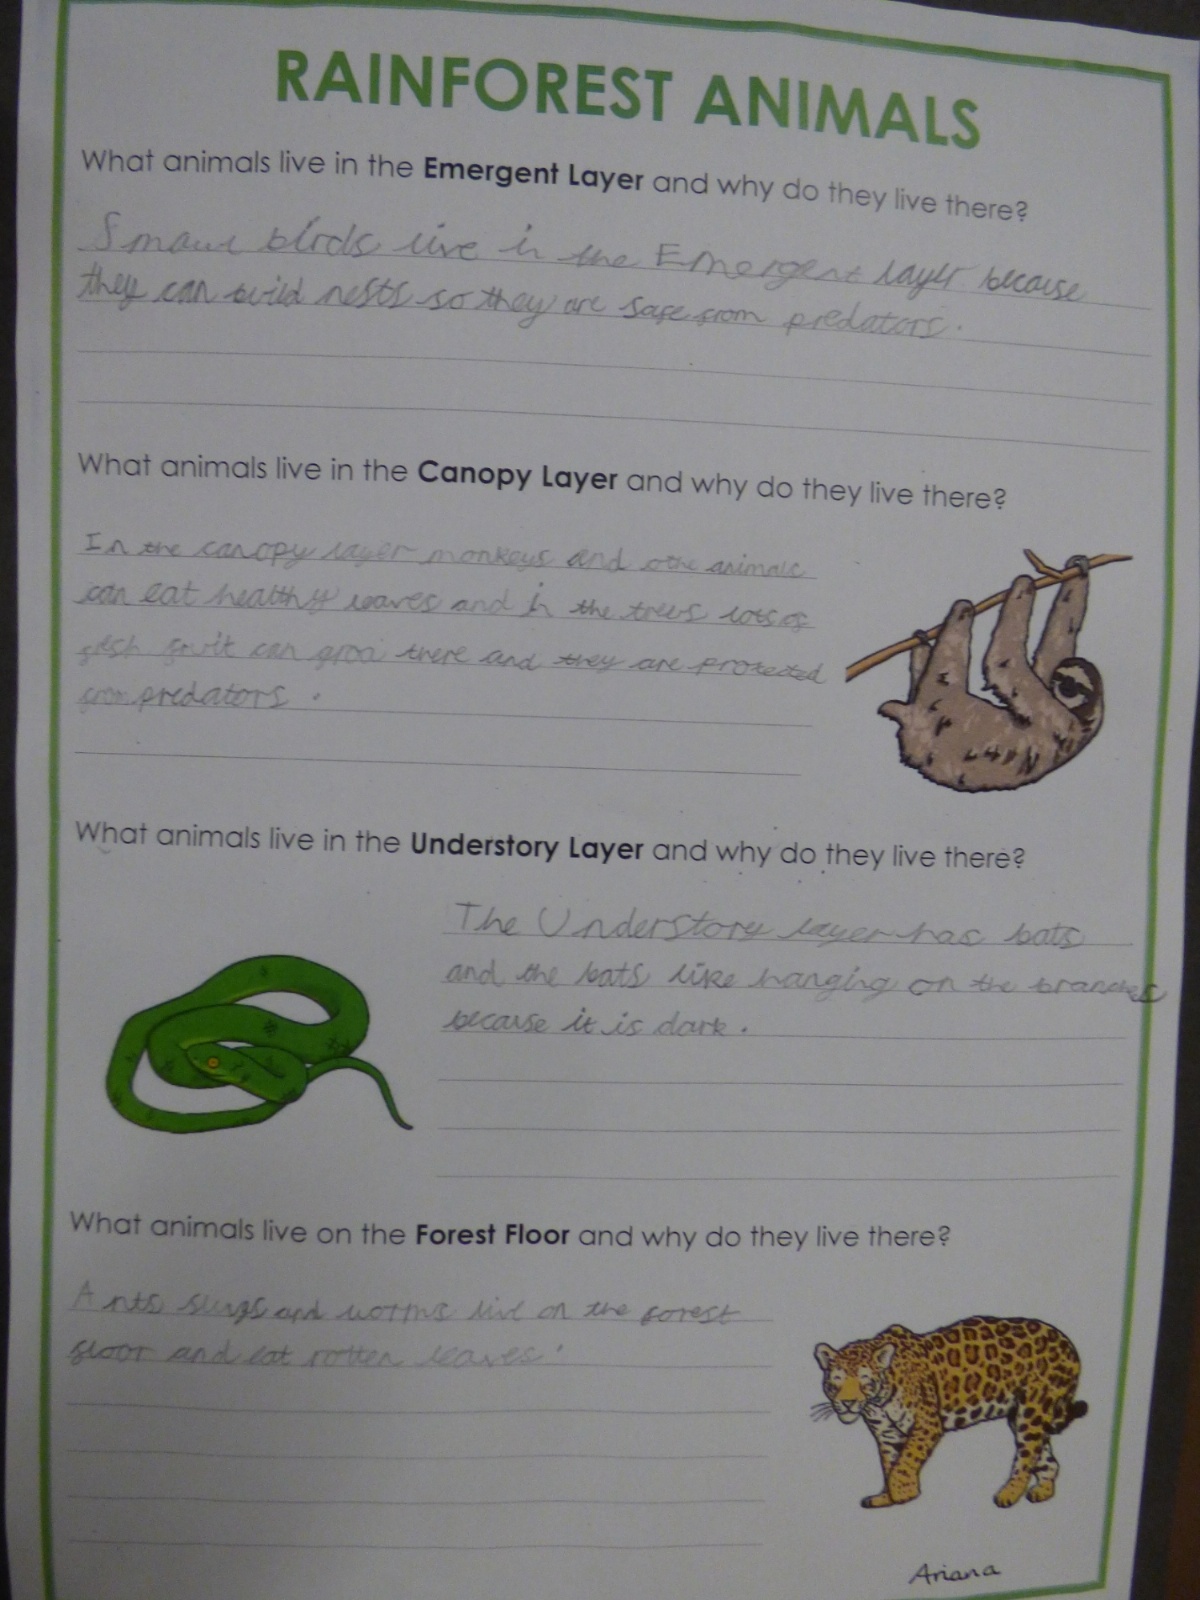 RAINFOREST ANIMALS
What animals live in the Emergent Layer and why do they live there?
Small birds live in the Emergent layer because
they can build nests so they are safe from predators.
What animals live in the Canopy Layer and why do they live there?
In the canopy layer monkeys and othe animals
can eat healthy leaves and in the trees lots of
fresh fruit can grow there and they are protected
from predators.
What animals live in the Understory Layer and why do they live there?
The Understory layer has bats
and the bats like hanging on the branches
because it is dark.
What animals live on the Forest Floor and why do they live there?
Ants slugs and worms live on the forest
floor and eat rotten leaves.
Ariana